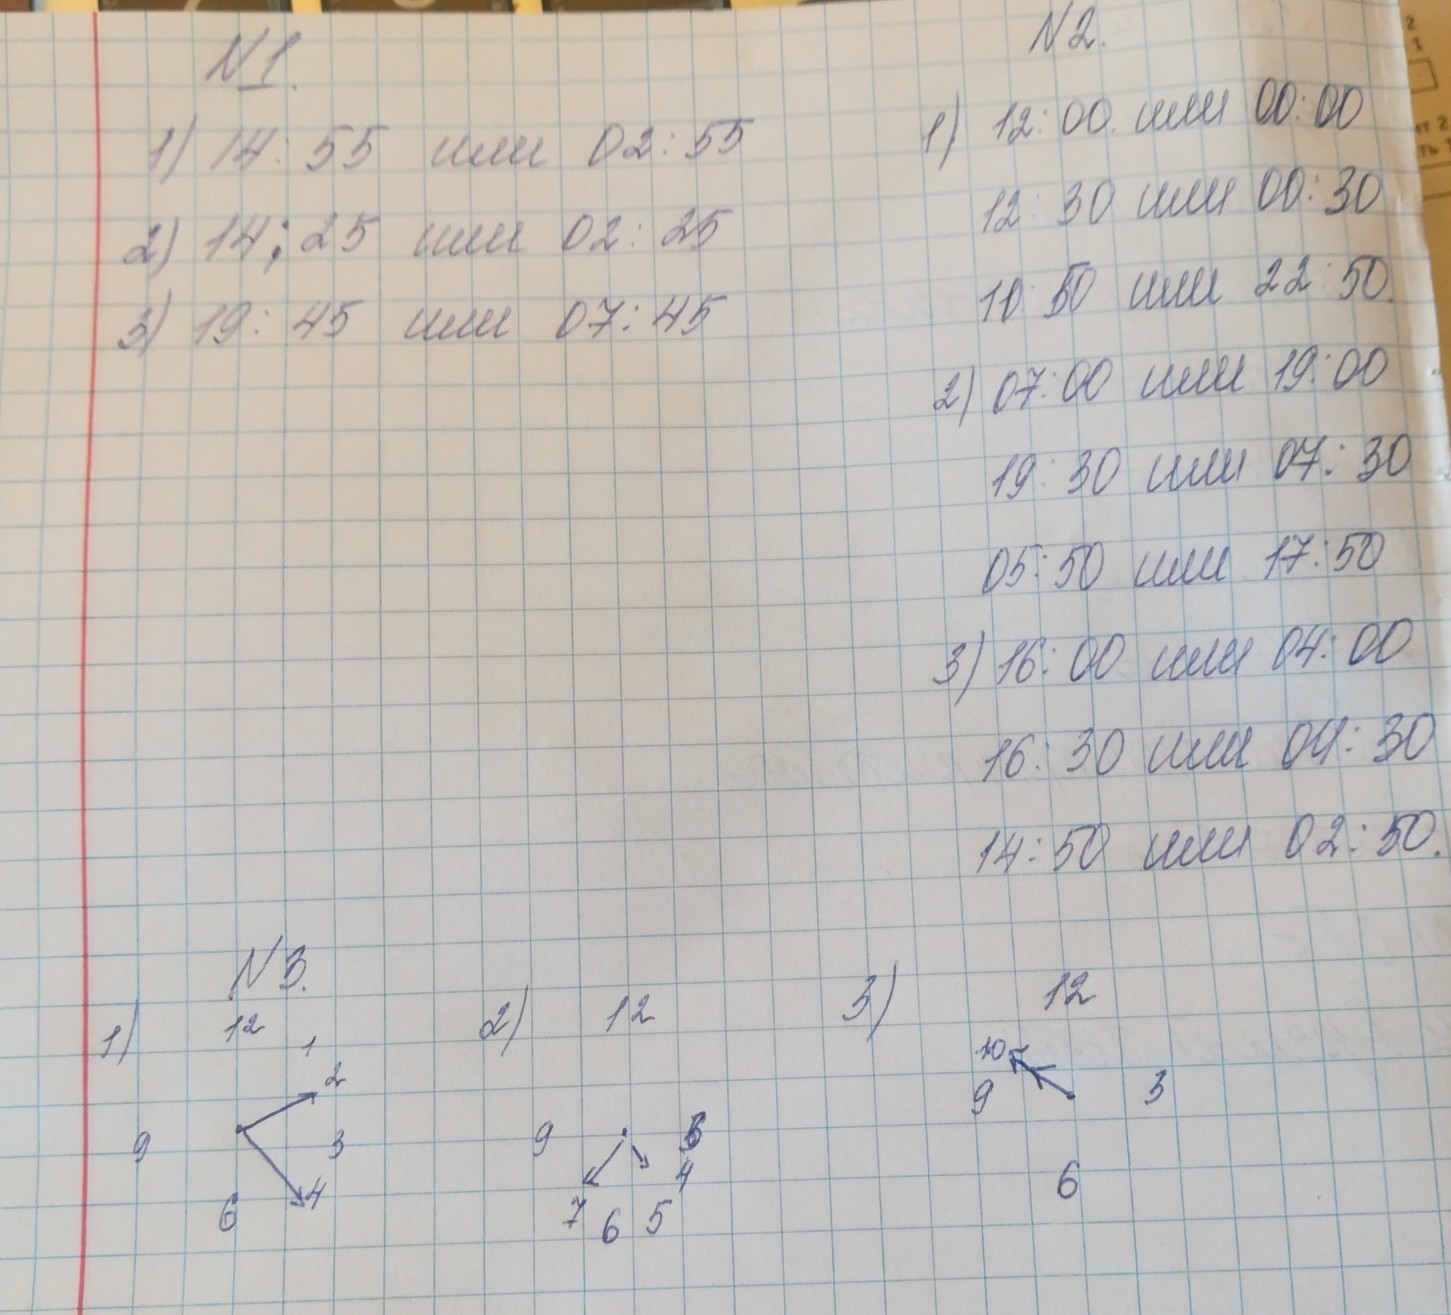 N1.
1) 14:55 или 02:55
2) 14:25 или 02:25
3) 19:45 или 07:45
N2.
1) 12:00. или 00:00
12:30 или 00:30
10:50 или 22:50.
2) 07:00 или 19:00
19:30 или 07:30
05:50 или 17:50
3) 16:00 или 04:00
16:30 или 04:30
14:50 или 02:50.
N3.
1)
12
1
2
9
3
4
6
2)
12
9
4
7
6
5
3)
12
10
9
3
6